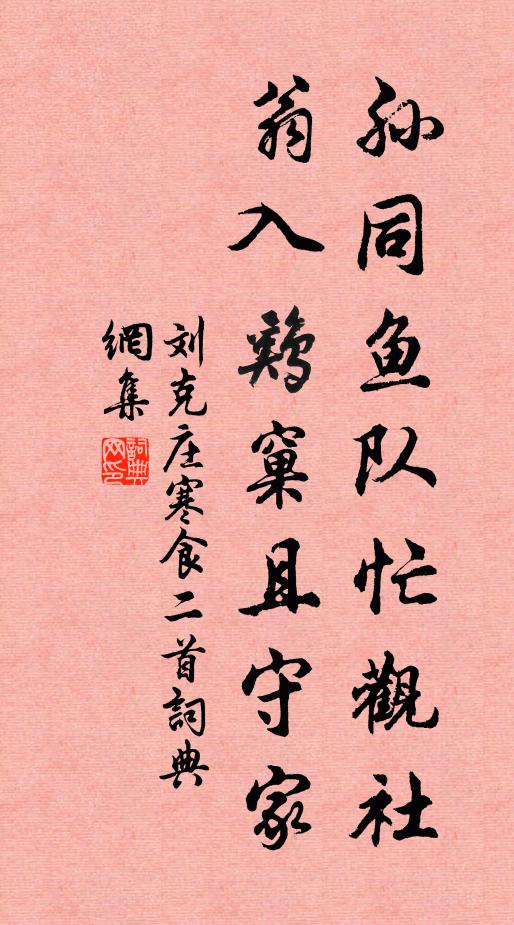 孙同鱼队忙觀社
翁入鷄窠且守家
刘克庄寒食二首詞典
網集
詞典
网印